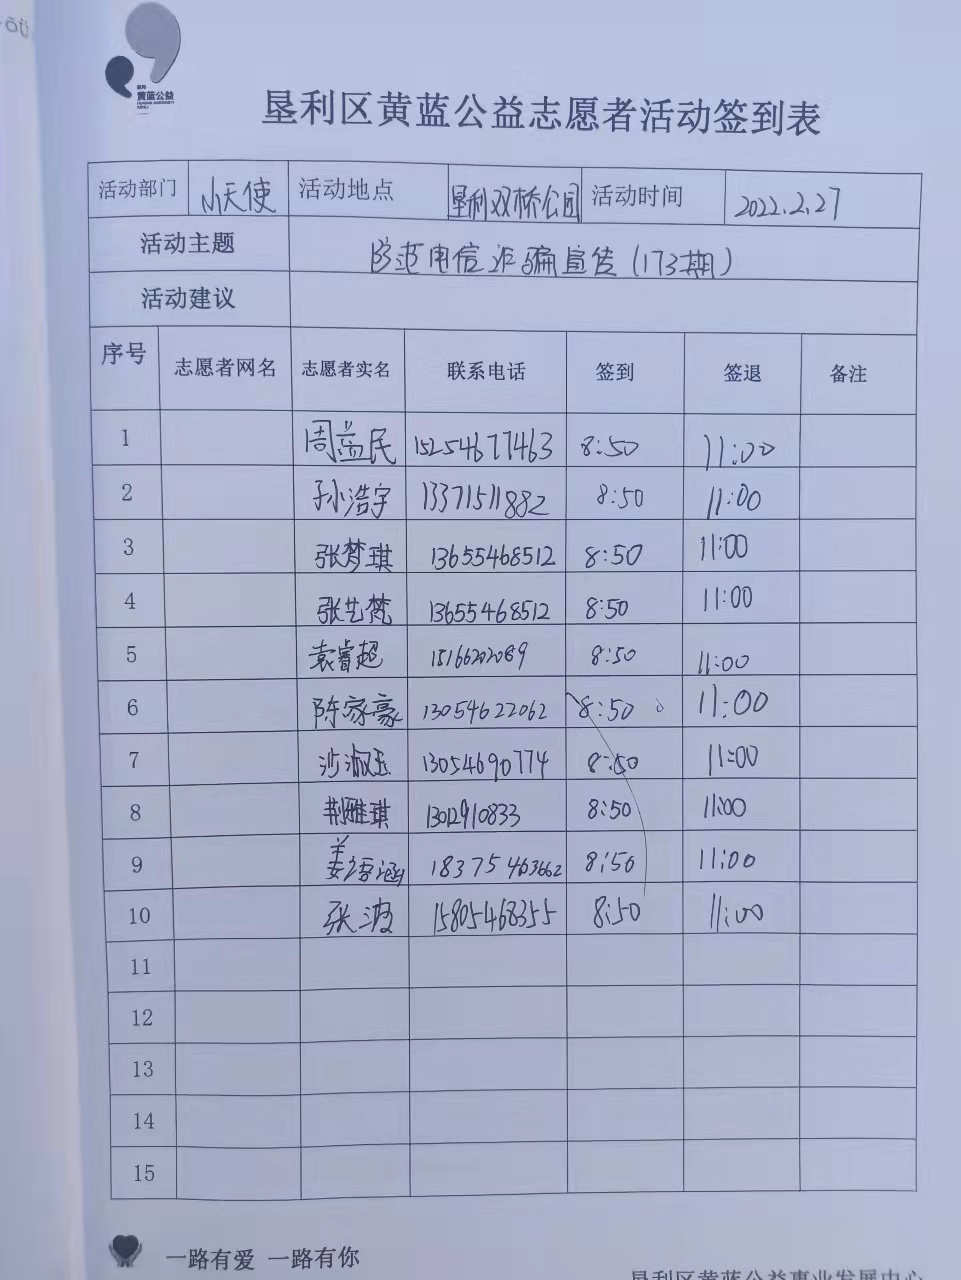 黄蓝公益
垦利区黄蓝公益志愿者活动签到表
活动部门 小天使 活动地点 垦利双桥公园 活动时间 2022.2.27
活动主题 防范电信诈骗宣传(173期)
活动建议
序号 志愿者网名 志愿者实名 联系电话 签到 签退 备注
1 周益民 15254677463 8:50 11:00
2 孙浩宇 13371511882 8:50 11:00
3 张梦琪 13655468512 8:50 11:00
4 张艺梵 13655468512 8:50 11:00
5 袁睿超 15166202089 8:50 11:00
6 陈家豪 13054622062 8:50 11:00
7 沙淑玉 13054690774 8:50 11:00
8 荆雅琪 1302910833 8:50 11:00
9 姜语涵 18375463662 8:50 11:00
10 张波 15805468355 8:50 11:00
11
12
13
14
15
一路有爱 一路有你
垦利区黄蓝公益事业发展中心